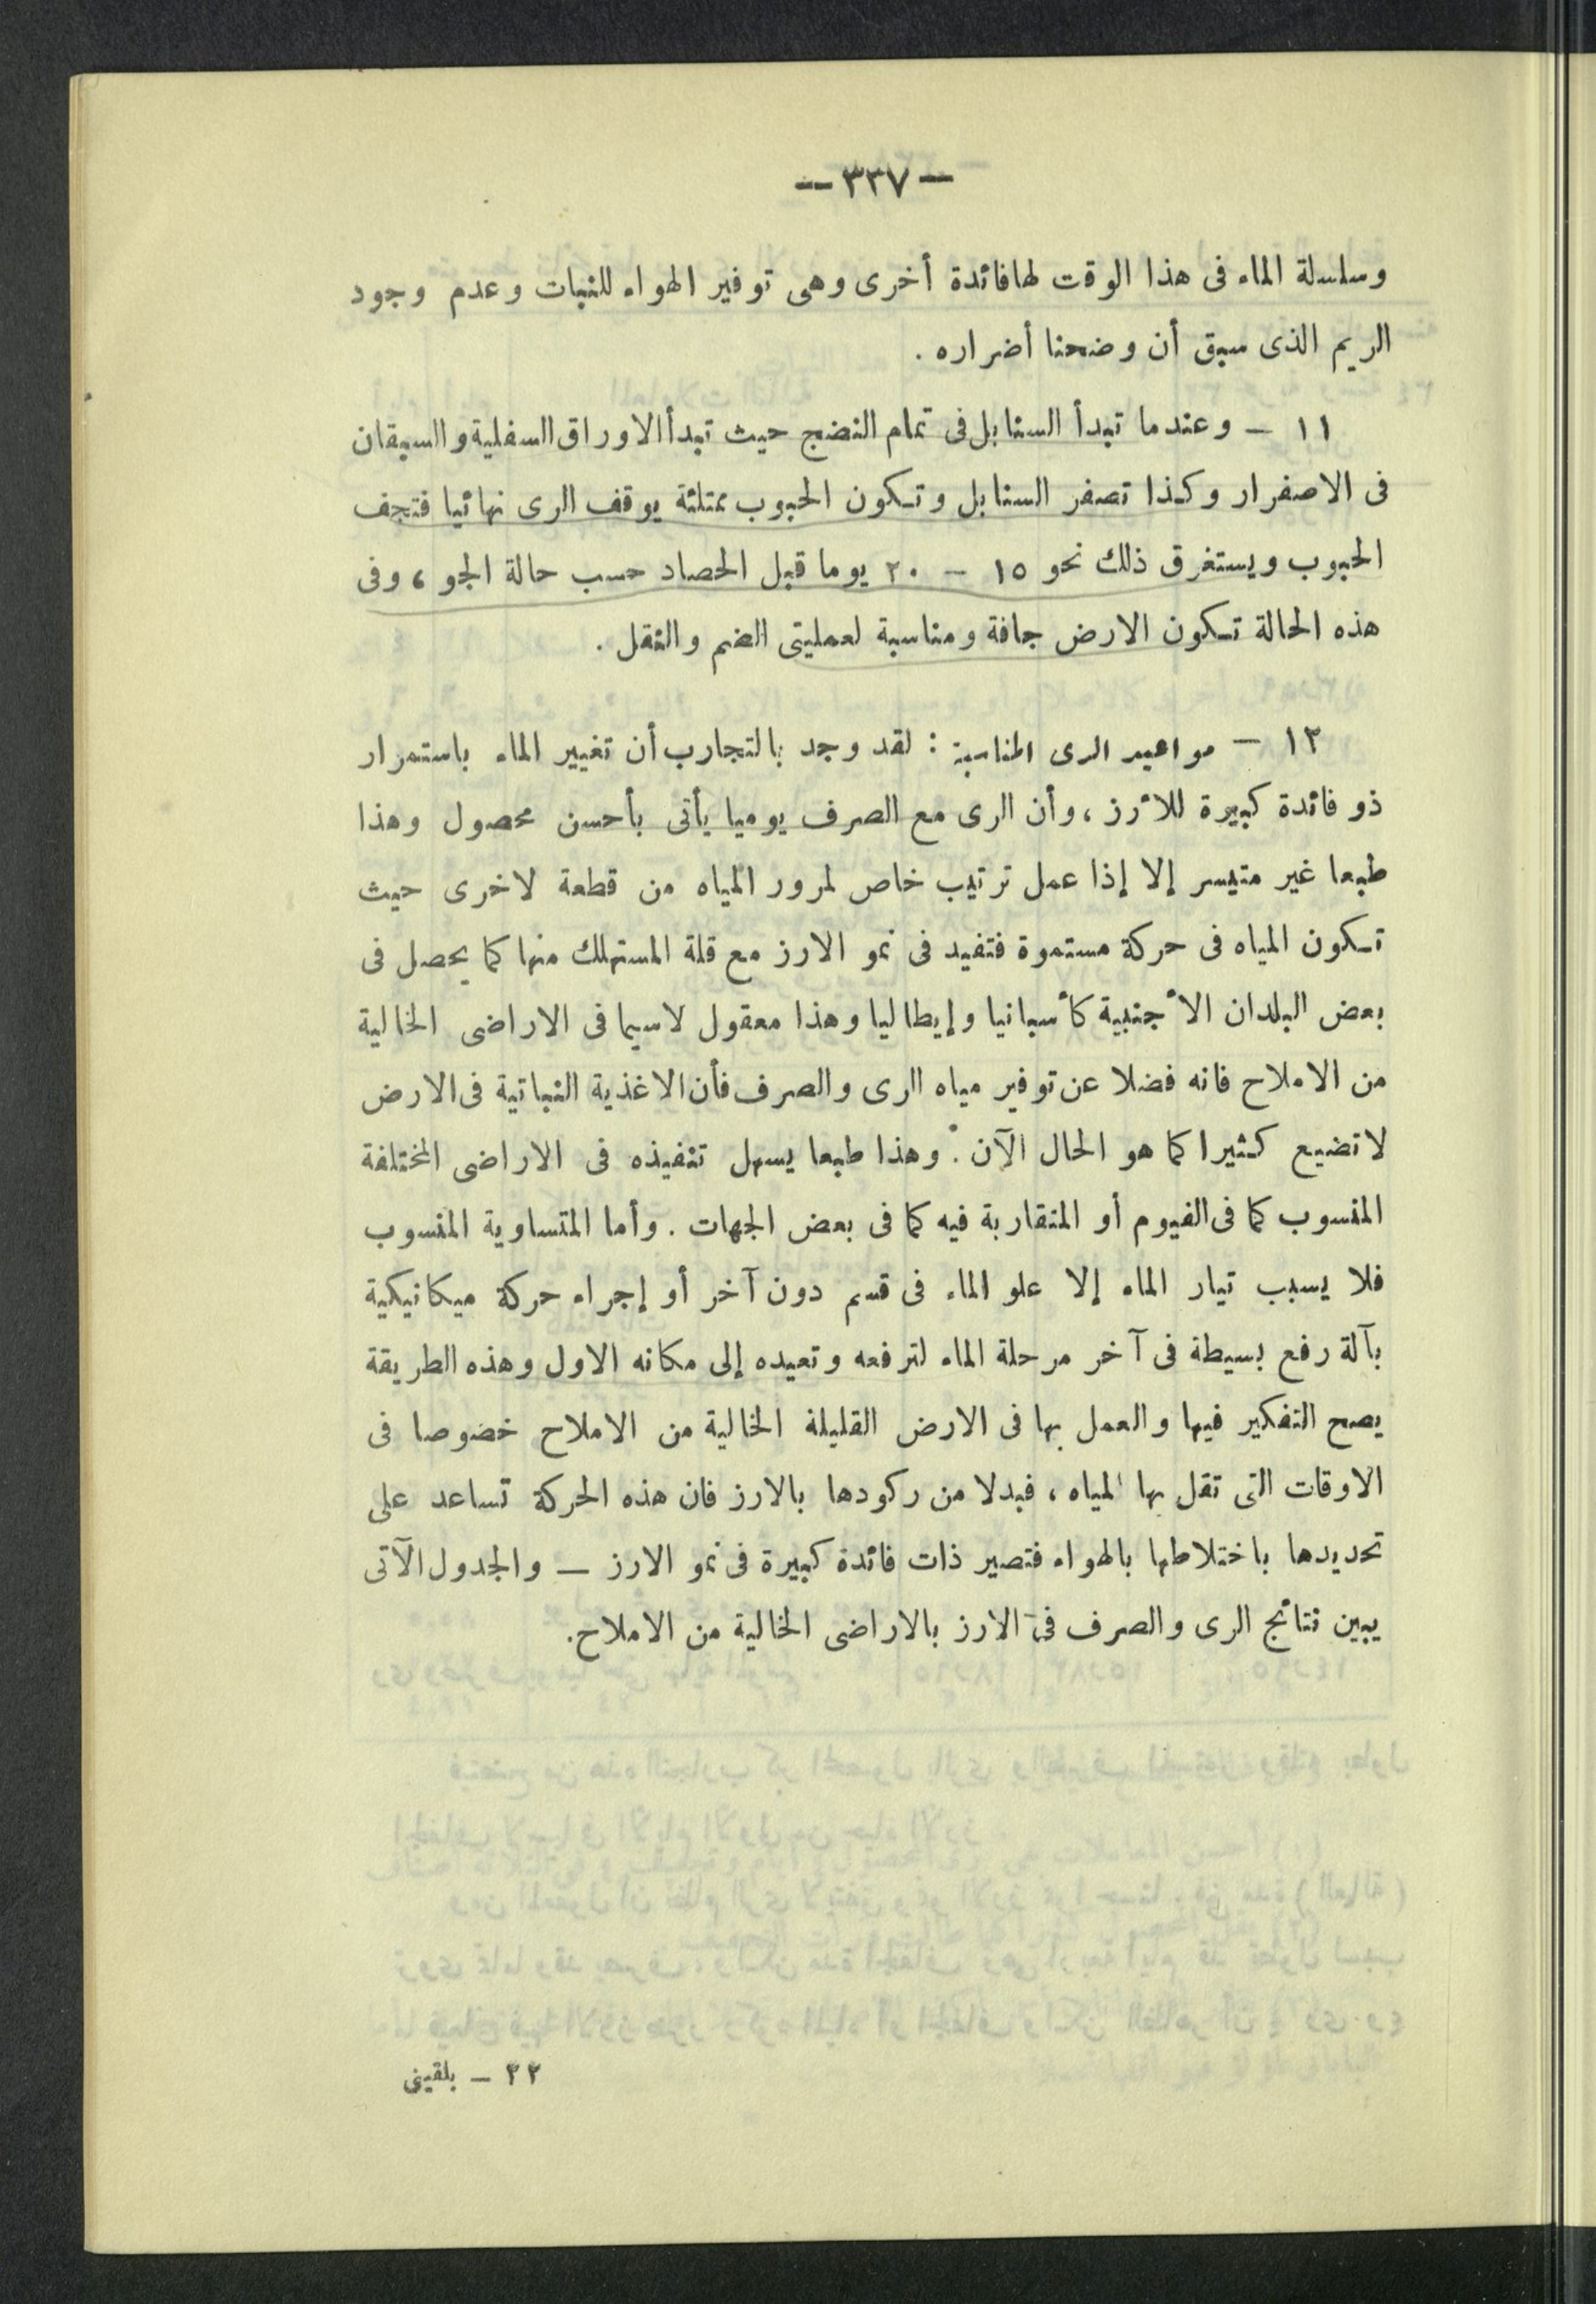 — ٣٣٧ —
وسلسلة الماء فى هذا الوقت لها فائدة أخرى وهى توفير الهواء للنبات وعدم وجود
الريم الذى سبق أن وضحنا أضراره .
١١ — وعندما تبدأ السنابل فى تمام النضج حيث تبدأ الاوراق السفلية والسيقان
فى الاصفرار وكذا تصفر السنابل وتكون الحبوب ممتلئة يوقف الرى نهائيا فتجف
الحبوب ويستغرق ذلك نحو ١٥ — ٢٠ يوما قبل الحصاد حسب حالة الجو ، وفى
هذه الحالة تكون الارض جافة ومناسبة لعمليتى الضم والنقل .
١٢ — مواعيد الرى المناسبة : لقد وجد بالتجارب أن تغيير الماء باستمرار
ذو فائدة كبيرة للأرز ، وأن الرى مع الصرف يوميا يأتى بأحسن محصول وهذا
طبعا غير متيسر إلا إذا عمل ترتيب خاص لمرور المياه من قطعة لاخرى حيث
تكون المياه فى حركة مستمرة فتفيد فى نمو الارز مع قلة المستهلك منها كما يحصل فى
بعض البلدان الأجنبية كأسبانيا وإيطاليا وهذا معقول لاسيما فى الاراضى الخالية
من الاملاح فانه فضلا عن توفير مياه الرى والصرف فأن الاغذية النباتية فى الارض
لا تضيع كثيرا كما هو الحال الآن . وهذا طبعا يسهل تنفيذه فى الاراضى المختلفة
المنسوب كما فى الفيوم أو المتقاربة فيه كما فى بعض الجهات . وأما المتساوية المنسوب
فلا يسبب تيار الماء إلا علو الماء فى قسم دون آخر أو إجراء حركة ميكانيكية
بآلة رفع بسيطة فى آخر مرحلة الماء لترفعه وتعيده إلى مكانه الاول وهذه الطريقة
يصح التفكير فيها والعمل بها فى الارض القليلة الخالية من الاملاح خصوصا فى
الاوقات التى تقل بها المياه ، فبدلا من ركودها بالارز فان هذه الحركة تساعد على
تحديدها باختلاطها بالهواء فتصير ذات فائدة كبيرة فى نمو الارز — والجدول الآتى
يبين نتائج الرى والصرف فى الارز بالاراضى الخالية من الاملاح .
٢٢ — بلقينى